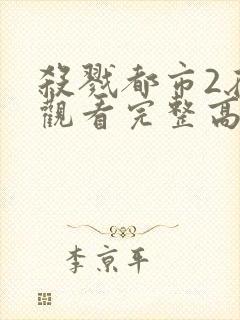 殺戮都市2在
觀看完整高
李京平